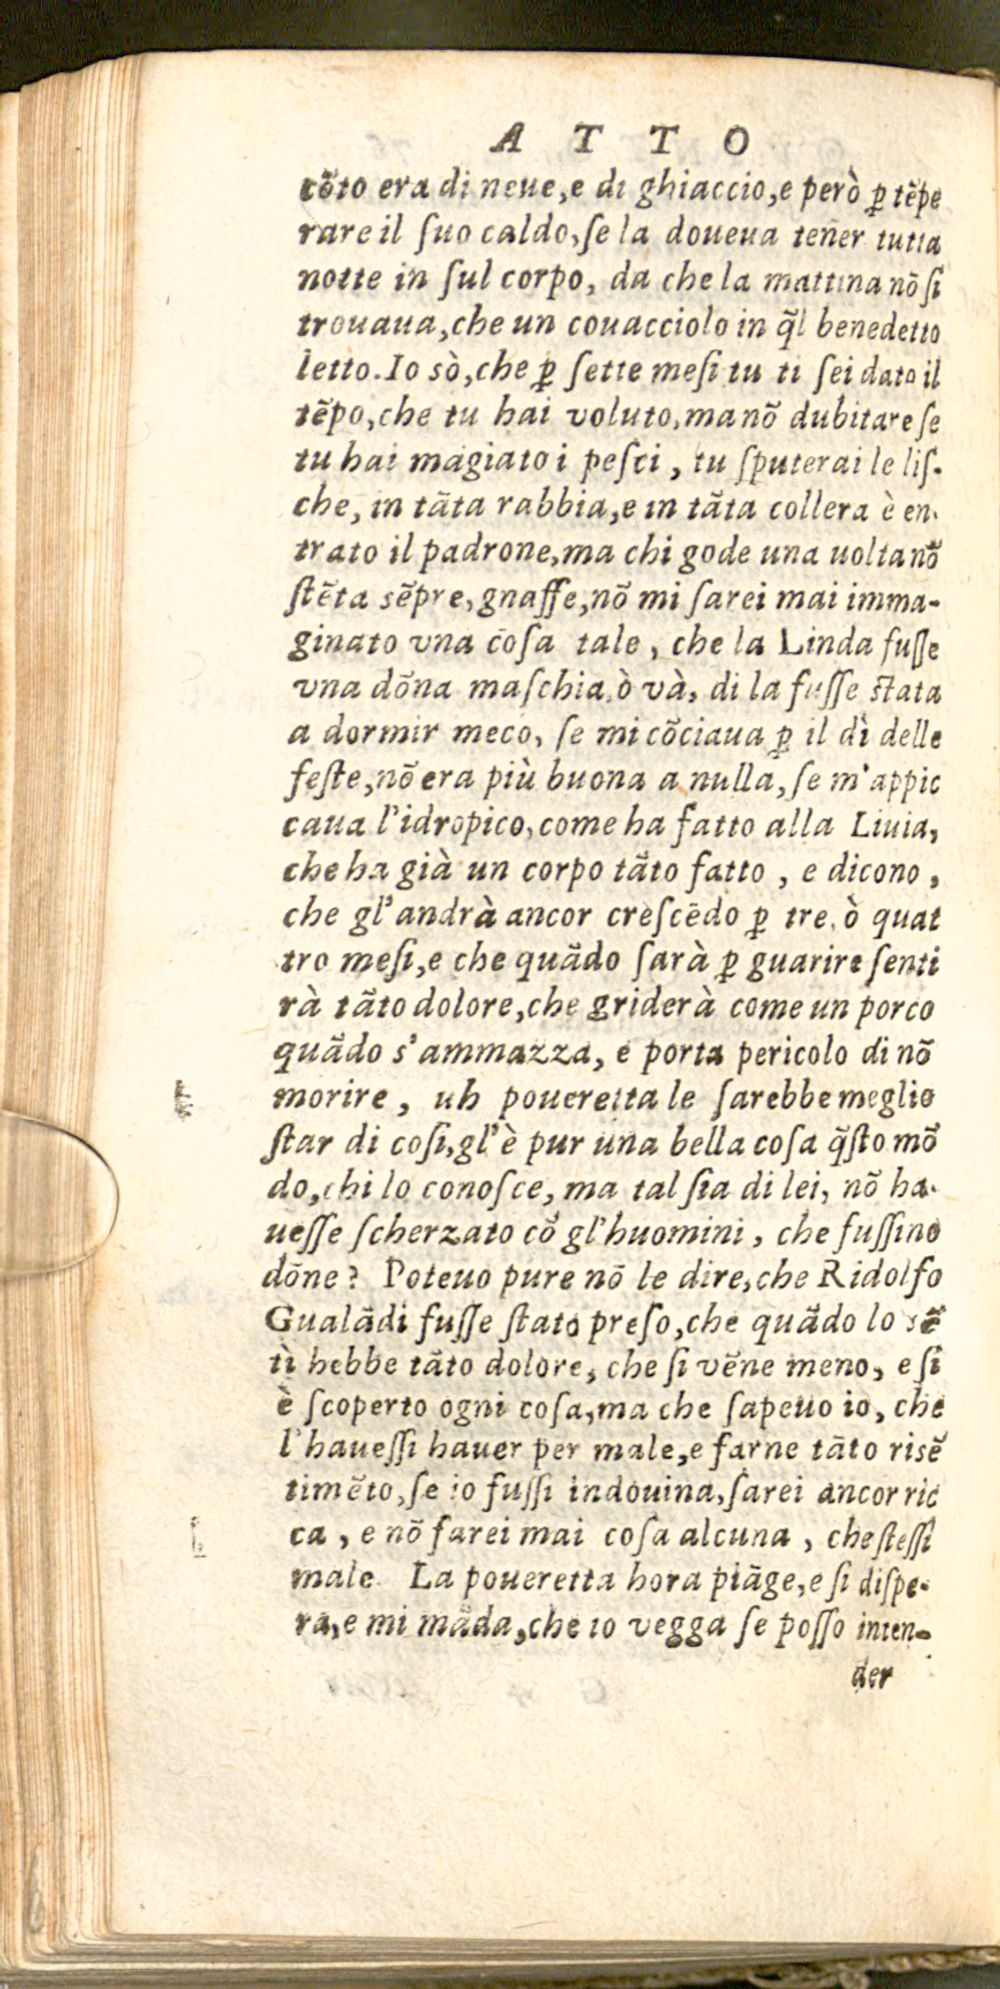 ATTO
cõto era di neue,e di ghiaccio,e però ꝑ tẽpe
rare il ſuo caldo,ſe la doueua teñer tutta
notte in ſul corpo, da che la mattina nõ ſi
trouaua,che un couacciolo in q̃l benedetto
letto. Io sò,che ꝑ ſette meſi tu ti ſei dato il
tẽpo,che tu hai voluto,ma nõ dubitare ſe
tu hai mãgiato i peſci, tu ſputerai le liſ-
che, in tãta rabbia,e in tãta collera è en-
trato il padrone,ma chi gode una uolta nõ
ſtẽta sẽpre,gnaffe,nõ mi ſarei mai imma-
ginato vna coſa tale, che la Linda fuſſe
vna dõna maſchia,ò và, di la fuſſe ſtata
a dormir meco, ſe mi cõciaua ꝑ il dì delle
feſte,nõ era più buona a nulla,ſe m'appic
caua l'idropico,come ha fatto alla Liuia,
che ha già un corpo tãto fatto, e dicono,
che gl'andrà ancor creſcẽdo ꝑ tre, ò quat
tro meſi,e che quãdo ſarà ꝑ guarire ſenti
rà tãto dolore,che griderà come un porco
quãdo s'ammazza, e porta pericolo di nõ
morire, uh poueretta le ſarebbe meglio
ſtar di coſi,gl'è pur una bella coſa q̃ſto mõ
do,chi lo conoſce, ma tal ſia di lei, nõ ha-
ueſſe ſcherzato cõ gl'huomini, che fuſſino
dõne? Poteuo pure nõ le dire,che Ridolfo
Gualãdi fuſſe ſtato preſo,che quãdo lo sẽ
tì hebbe tãto dolore, che ſi vẽne meno, e ſi
è ſcoperto ogni coſa,ma che ſapeuo io, che
l'haueſſi hauer per male,e farne tãto riſẽ
timẽto,ſe io fuſſi indouina,ſarei ancor ric
ca, e nõ farei mai coſa alcuna, che ſteſſi
male. La poueretta hora piãge,e ſi diſpe-
ra,e mi mãda,che io vegga ſe poſſo inten-
der